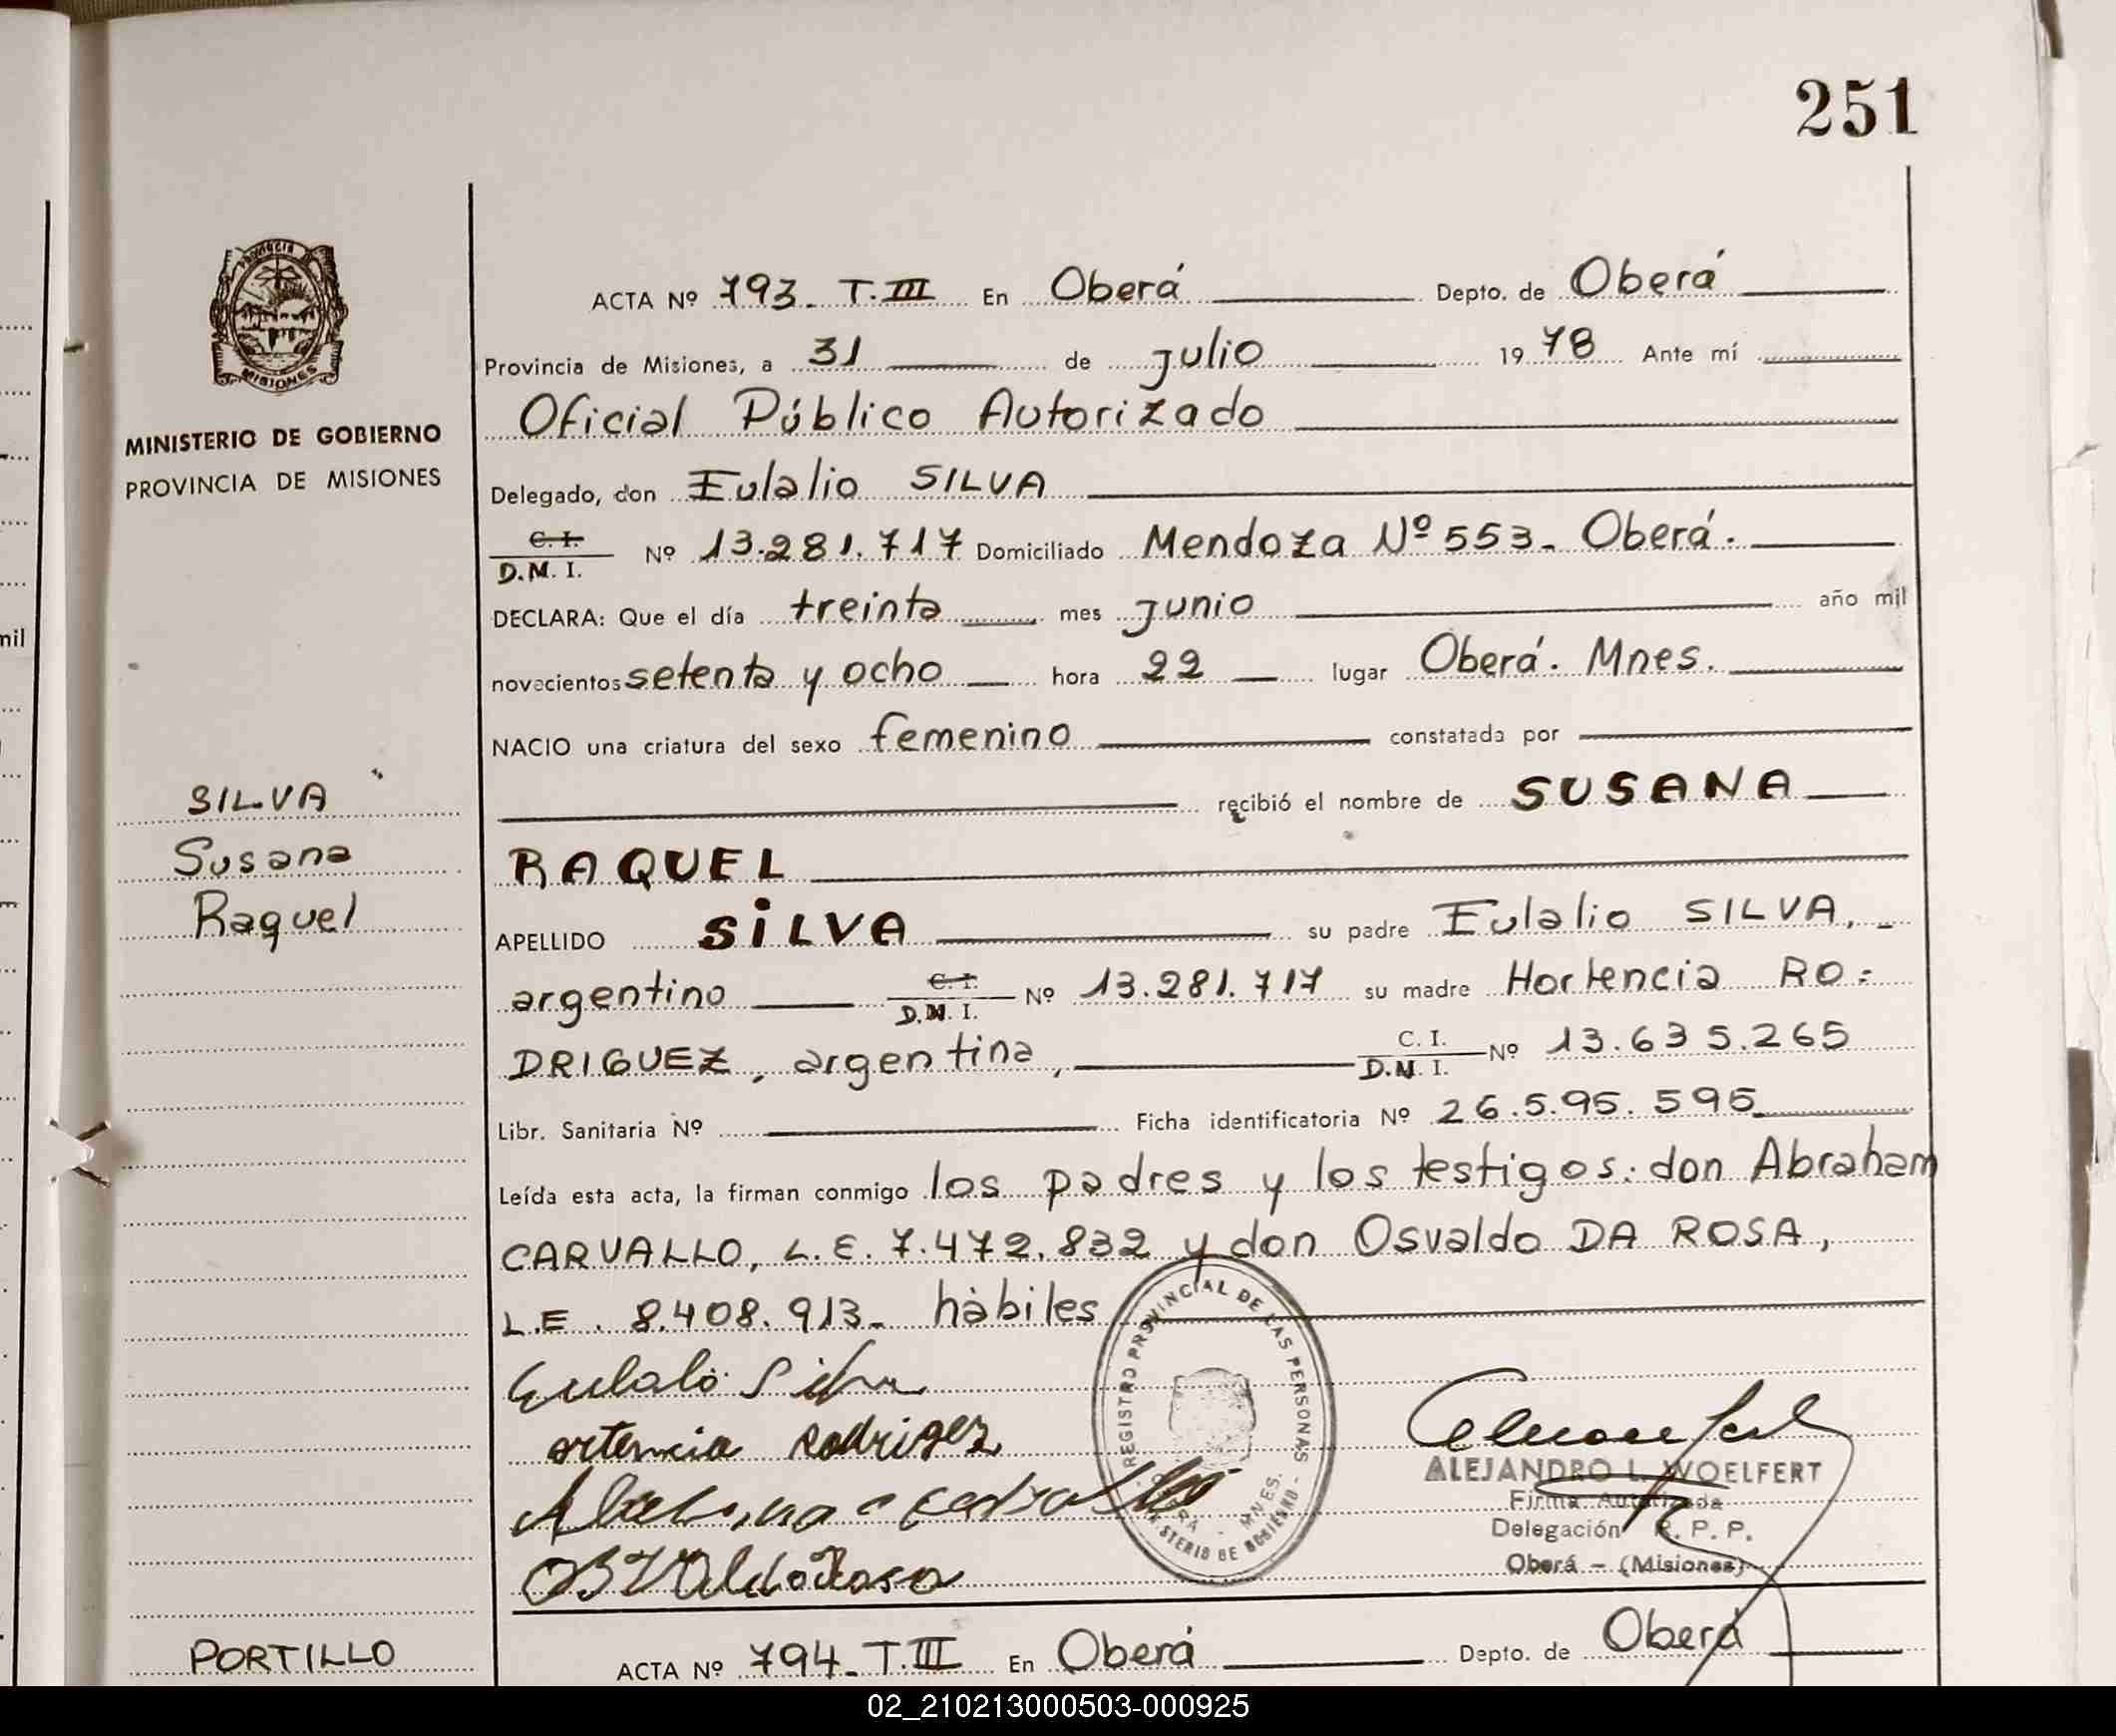 251
PROVINCIA DE
MISIONES
MINISTERIO DE GOBIERNO
PROVINCIA DE MISIONES
ACTA Nº 793_ T.III En Oberá Depto. de Oberá
Provincia de Misiones, a 31 de julio 1978 Ante mí
Oficial Público Autorizado
Delegado, don Eulalio SILVA
C.I.
D.M.I. Nº 13.281.717 Domiciliado Mendoza Nº 553_ Oberá.
DECLARA: Que el día treinta mes junio año mil
mil
novecientos setenta y ocho hora 22 lugar Oberá. Mnes.
NACIO una criatura del sexo femenino constatada por
SILVA
recibió el nombre de SUSANA
Susana
RAQUEL
Raquel
APELLIDO SILVA su padre Eulalio SILVA,
argentino C.I. D.M.I. Nº 13.281.717 su madre Hortencia RO=
DRIGUEZ, argentina, C.I. D.M.I. Nº 13.635.265
Libr. Sanitaria Nº Ficha identificatoria Nº 26.5.95.595
Leída esta acta, la firman conmigo los padres y los testigos: don Abraham
CARVALLO, L.E. 7.472.832 y don Osvaldo DA ROSA,
L.E. 8.408.913_ hàbiles
REGISTRO PROVINCIAL DE LAS PERSONAS
OBERA - MNES.
MINISTERIO DE GOBIERNO
Eulalio Silva
ortencia Rodrigez
ALEJANDRO L. WOELFERT
Firma Autorizada
Delegación R. P. P.
Oberá - (Misiones)
PORTILLO
ACTA Nº 794_ T.III En Oberá Depto. de Oberá
02_210213000503-000925